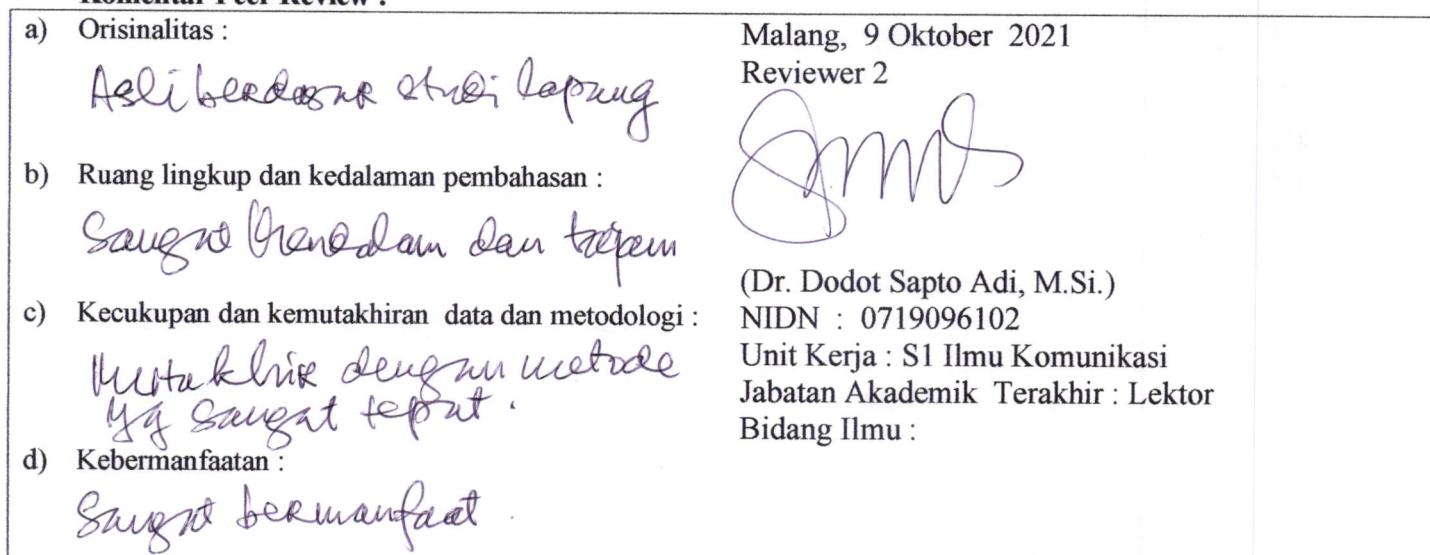 Komentar Peer Review :
a) Orisinalitas :
Asli berdasar studi lapang
b) Ruang lingkup dan kedalaman pembahasan :
Sangat mendalam dan tajam
c) Kecukupan dan kemutakhiran data dan metodologi :
Mutakhir dengan metode
yg sangat tepat.
d) Kebermanfaatan :
Sangat bermanfaat.
Malang, 9 Oktober 2021
Reviewer 2
(Dr. Dodot Sapto Adi, M.Si.)
NIDN : 0719096102
Unit Kerja : S1 Ilmu Komunikasi
Jabatan Akademik Terakhir : Lektor
Bidang Ilmu :